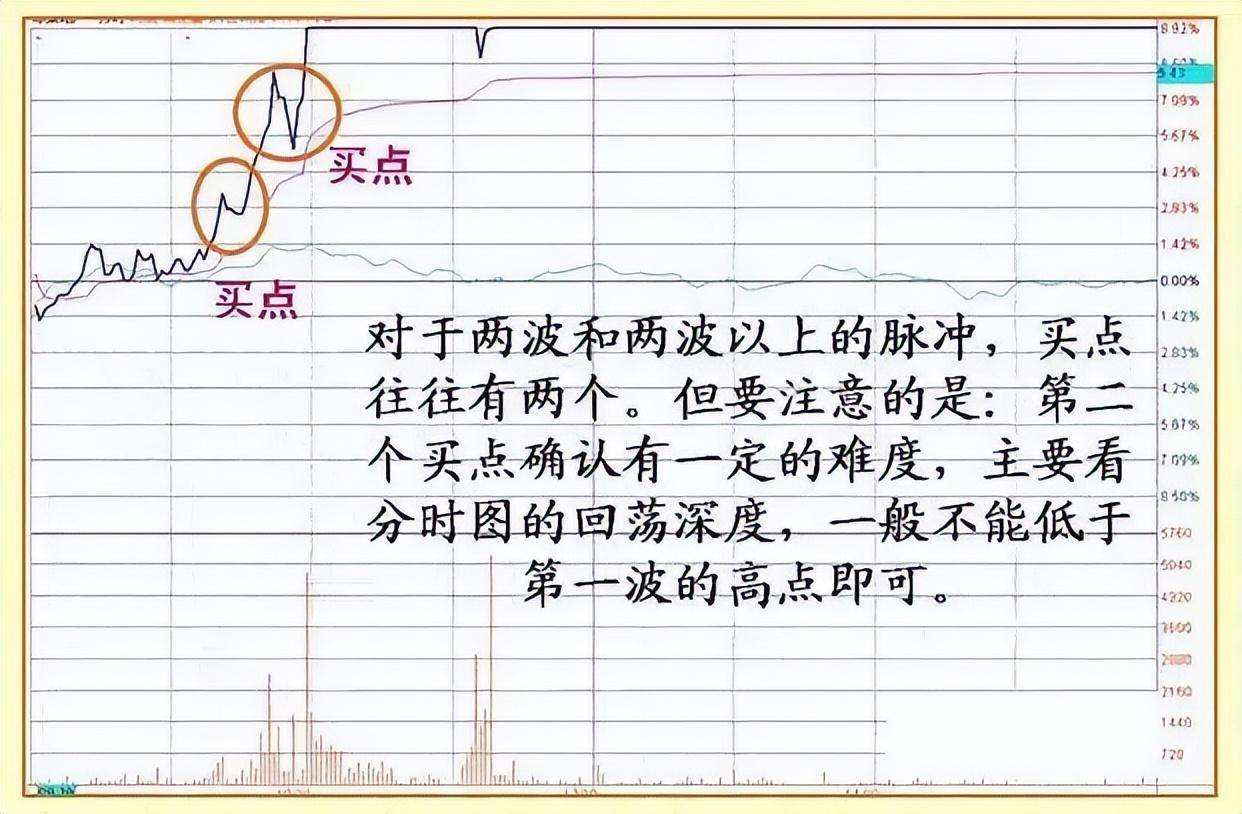 8.92%
7.09%
5.67%
买点
4.25%
2.83%
1.42%
0.00%
买点
1.42%
对于两波和两波以上的脉冲，买点
2.83%
往往有两个。但要注意的是：第二
4.25%
个买点确认有一定的难度，主要看
7.09%
分时图的回荡深度，一般不能低于
5760
第一波的高点即可。
5040
4320
2160
1440
720